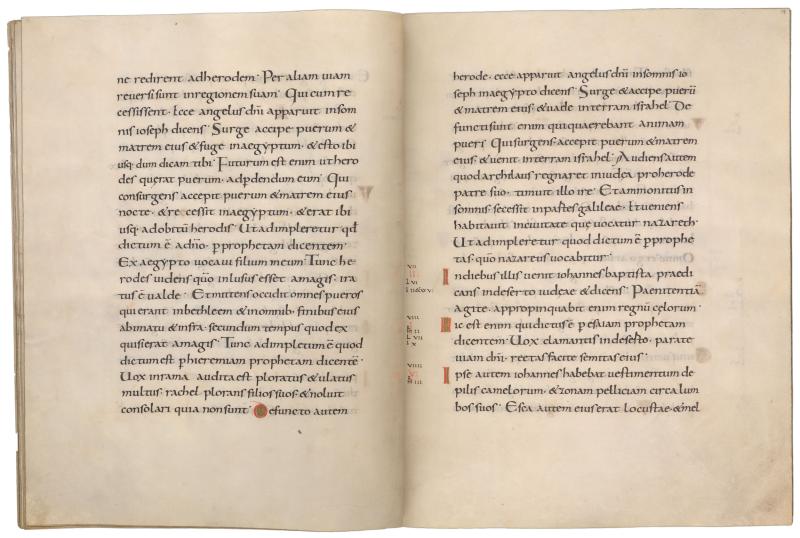 ne redirent adherodem· Per aliam uiam
reuersi sunt inregionem suam· Qui cum re
cessissent· Ecce angelus dñi apparuit insom
nis ioseph dicens· Surge accipe puerum &
matrem eius & fuge inaegyptum· & esto ibi
usq; dum dicam tibi· Futurum est enim ut hero
des querat puerum· adpdendum eum· Qui
consurgens accepit puerum & matrem eius
nocte· & recessit inaegyptum· & erat ibi
usq; adobitū herodis· Ut adimpleretur qđ
dictum ē adño· pprophetam dicentem·
Ex aegypto uocaui filium meum· Tunc he
rodes uidens quō inlusus esset amagis· ira
tus ē ualde· Et mittens occidit omnes pueros
qui erant inbethleem & inomnib; finibus eius
abimatu & infra· secundum tempus quod ex
quisierat amagis· Tunc adimpletum ē quod
dictum est phieremiam prophetam dicentē·
Uox inrama audita est ploratus & ulatus
multus· rachel plorans filios suos· & noluit
consolari quia non sunt· Defuncto autem
herode· ecce apparuit angelus dñi insomnis io
seph inaegypto dicens· Surge & accipe puerū
& matrem eius· & uade interram israhel· De
functi sunt enim qui quaerebant animam
pueri· Qui surgens· accepit puerum & matrem
eius & uenit interram israhel· Audiens autem
quod archilaus regnaret iniudęa proherode
patre suo· timuit illo ire· Et ammonitus in
somnis· secessit inpartes galileae· Et ueniens
habitauit inciuitate que uocatur nazareth·
Ut adimpleretur quod dictum ē pprophe
tas· quō nazareus uocabitur·
VII
II
L VI
Indiebus illis uenit iohannes baptista praedi
cans indeserto iudęae & dicens· Paenitentiā
agite· appropinquabit enim regnū cęlorum·
VIII
Hic est enim qui dictus ē pesaiam prophetam
L VII
X
dicentem· Uox clamantis indeserto· parate
uiam dñi· rectas facite semitas eius·
VIIII
Ipse autem iohannes habebat uestimentum de
pilis camelorum· & zonam pelliciam circa lum
bos suos· Esca autem eius erat locustae· & mel